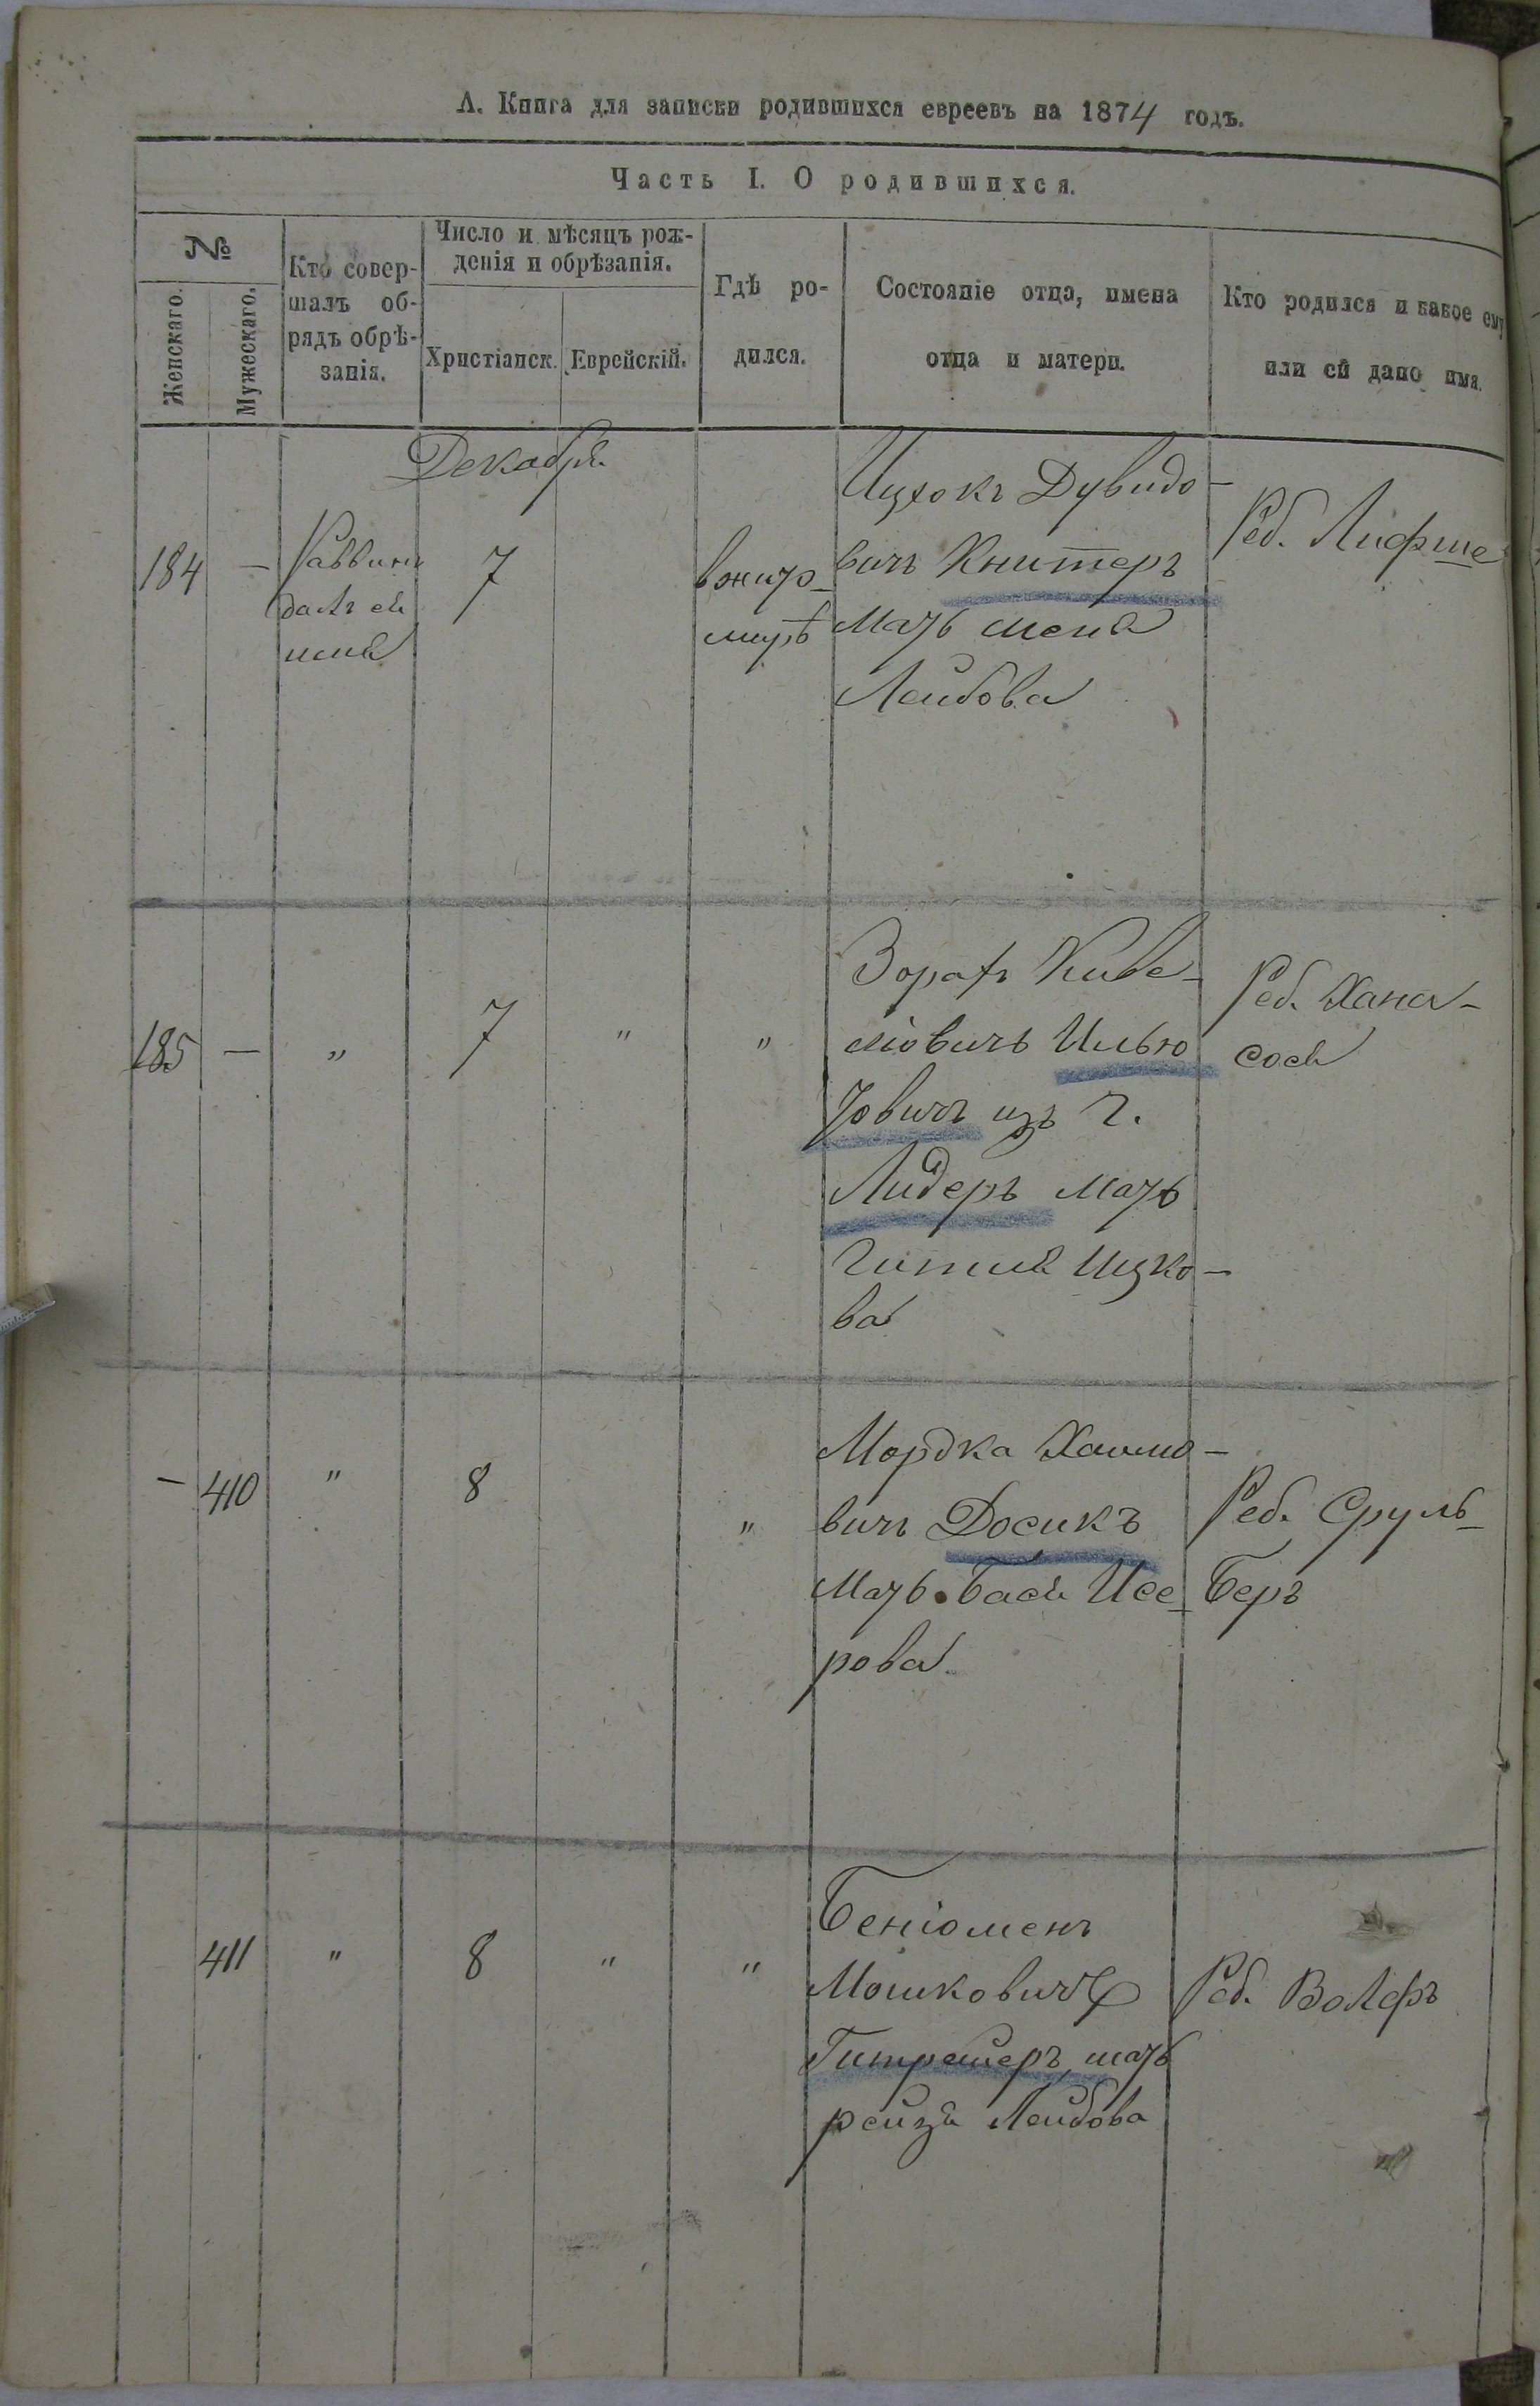 А. Книга для записки родившихся евреевъ на 1874 годъ.
Часть I. О родившихся.
№
Женскаго.
Мужескаго.
Кто совер-
шалъ об-
рядъ обрѣ-
занія.
Число и мѣсяцъ рож-
денія и обрѣзанія.
Христіанск.
Еврейскій.
Гдѣ ро-
дился.
Состояніе отца, имена
отца и матери.
Кто родился и какое ему
или ей дано имя.
Декабрь
184
—
Раввинъ
далъ ей
имя
7
вжито-
мирѣ
Ицхокъ Дувидо-
вичъ Книтеръ
мать
Лейбова
Реб. Лифше
185
—
"
7
"
"
Ильюо
човичъ изъ г.
Лидеръ мать
Гитля Ицко-
ва
Реб. Хана-
сося
—
410
"
8
"
Мордка Хаимо-
вичъ Досикъ
мать Бася Исе-
рова
Реб. Сруль-
Беръ
411
"
8
"
"
Беніоменъ
Мошковичъ
мать
рейзя Лейбова
Реб. Волфъ